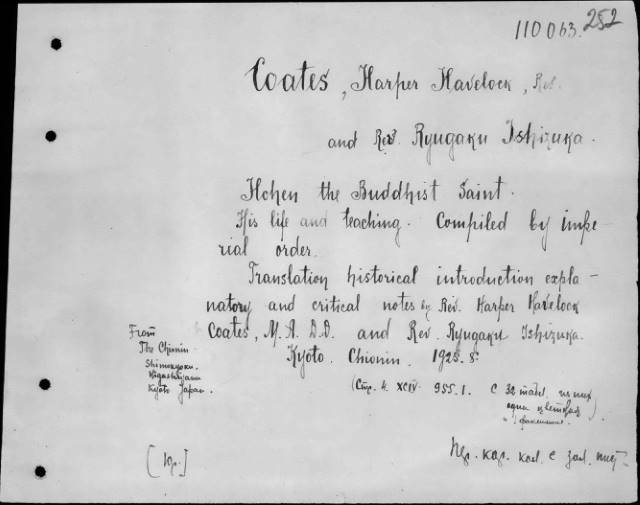 110063. 252
Coates, Harper Havelock, Rev.
and Rev. Ryugaku Ishizuka.
Hohen the Buddhist Saint.
His life and teaching. Compiled by impe-
rial order.
Translation historical introduction expla-
natory and critical notes by Rev. Harper Havelock
Coates, M.A. D.D. and Rev. Ryugaku Ishizuka.
Kyoto. Chionin. 1925. 8.
From
The Chionin
Shimokyoku.
Higashiyama
Kyoto Japan.
(Стр. 4. XCIV. 955. 1. с 32 табл. из них
одна цветная
[1 р.]
Пер. кар. кол. с зол. тис.